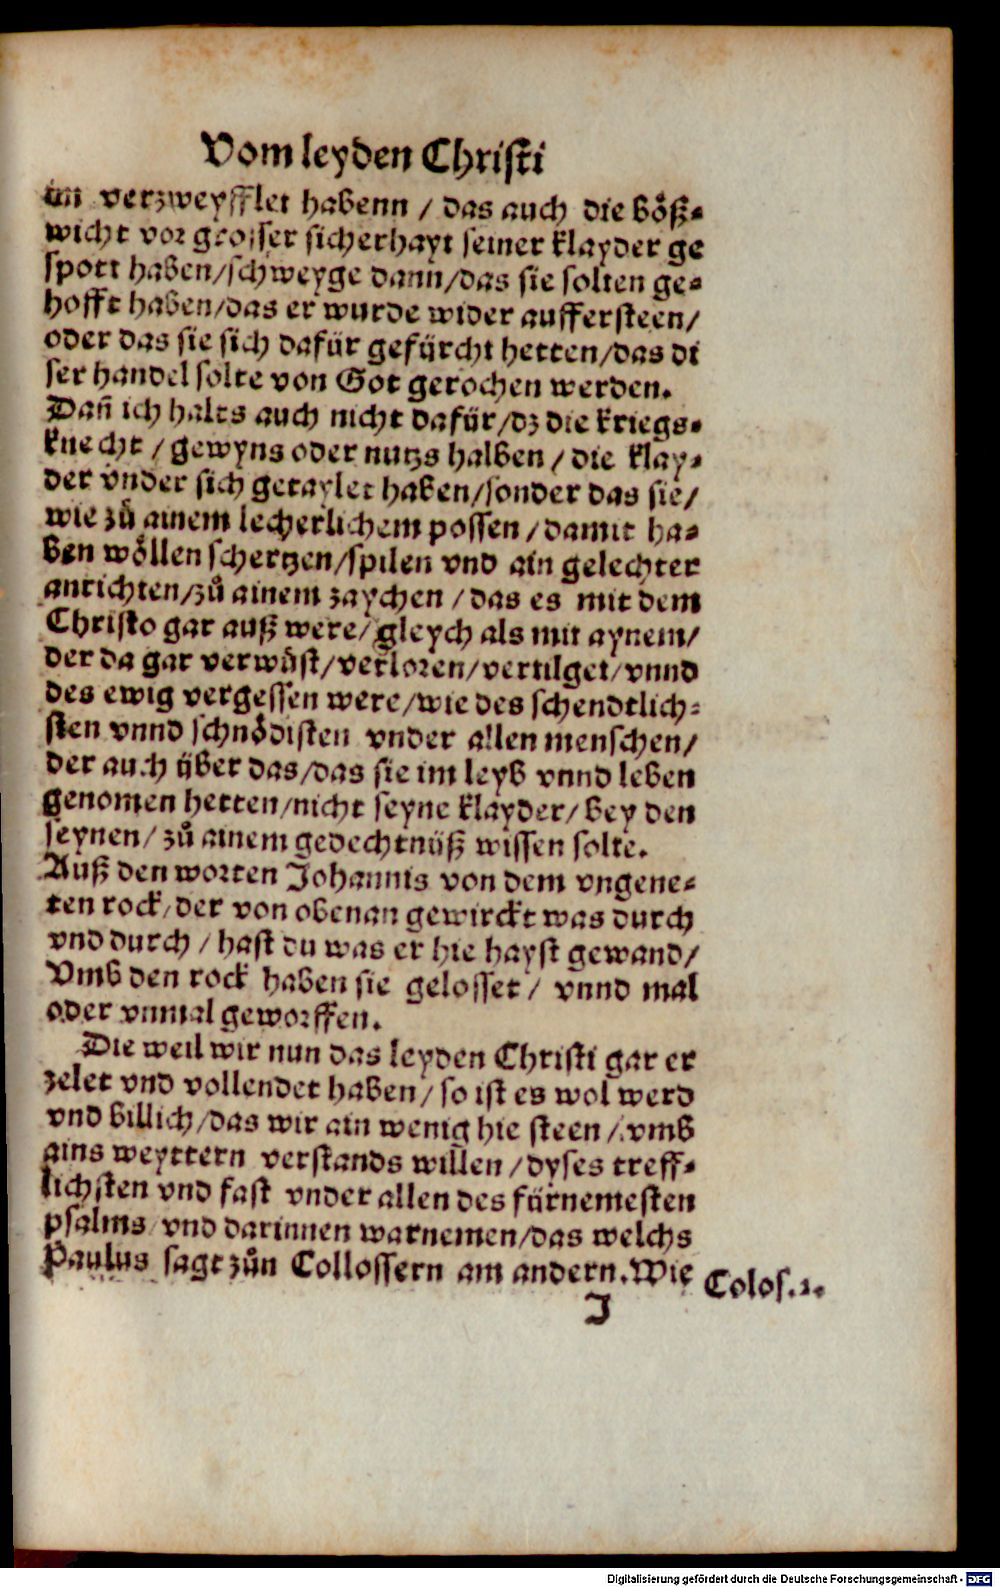 Vom leyden Christi
im verzweyfflet habenn / das auch die böß⸗
wicht vor grosser sicherhayt seiner klayder ge
spott haben/schweyge dann/das sie solten ge⸗
hofft haben/das er wurde wider aufferſteen/
oder das sie sich dafür gefürcht hetten/das di
ser handel solte von Got gerochen werden.
Dañ ich halts auch nicht dafür/dz die kriegs⸗
knecht / gewyns oder nutzs halben / die klay⸗
der vnder sich getaylet haben/sonder das sie/
wie zů ainem lecherlichem possen / damit ha⸗
ben wöllen schertzen/spilen vnd ain gelechter
anrichten/zů ainem zaychen / das es mit dem
Christo gar auß were/gleych als mit aynem/
der da gar verwüst/verloren/vertilget/vnnd
des ewig vergessen were/wie des schendtlich⸗
sten vnnd schnödisten vnder allen menschen/
der auch über das/das sie im leyb vnnd leben
genomen hetten/nicht seyne klayder/bey den
seynen/ zů ainem gedechtnüß wissen solte.
Auß den worten Johannis von dem vngene⸗
ten rock/der von obenan gewirckt was durch
vnd durch / hast du was er hie hayst gewand/
Vmb den rock haben sie gelosset / vnnd mal
oder vnmal geworffen.
Die weil wir nun das leyden Christi gar er
zelet vnd vollendet haben/so ist es wol werd
vnd billich/das wir ain wenig hie steen /vmb
ains weyttern verstands willen /dyses treff⸗
lichsten vnd fast vnder allen des fürnemesten
psalms/vnd darinnen warnemen/das welchs
Paulus sagt zůn Collossern am andern. Wie
Colos.2.
J
Digitalisierung gefördert durch die Deutsche Forschungsgemeinschaft - DFG